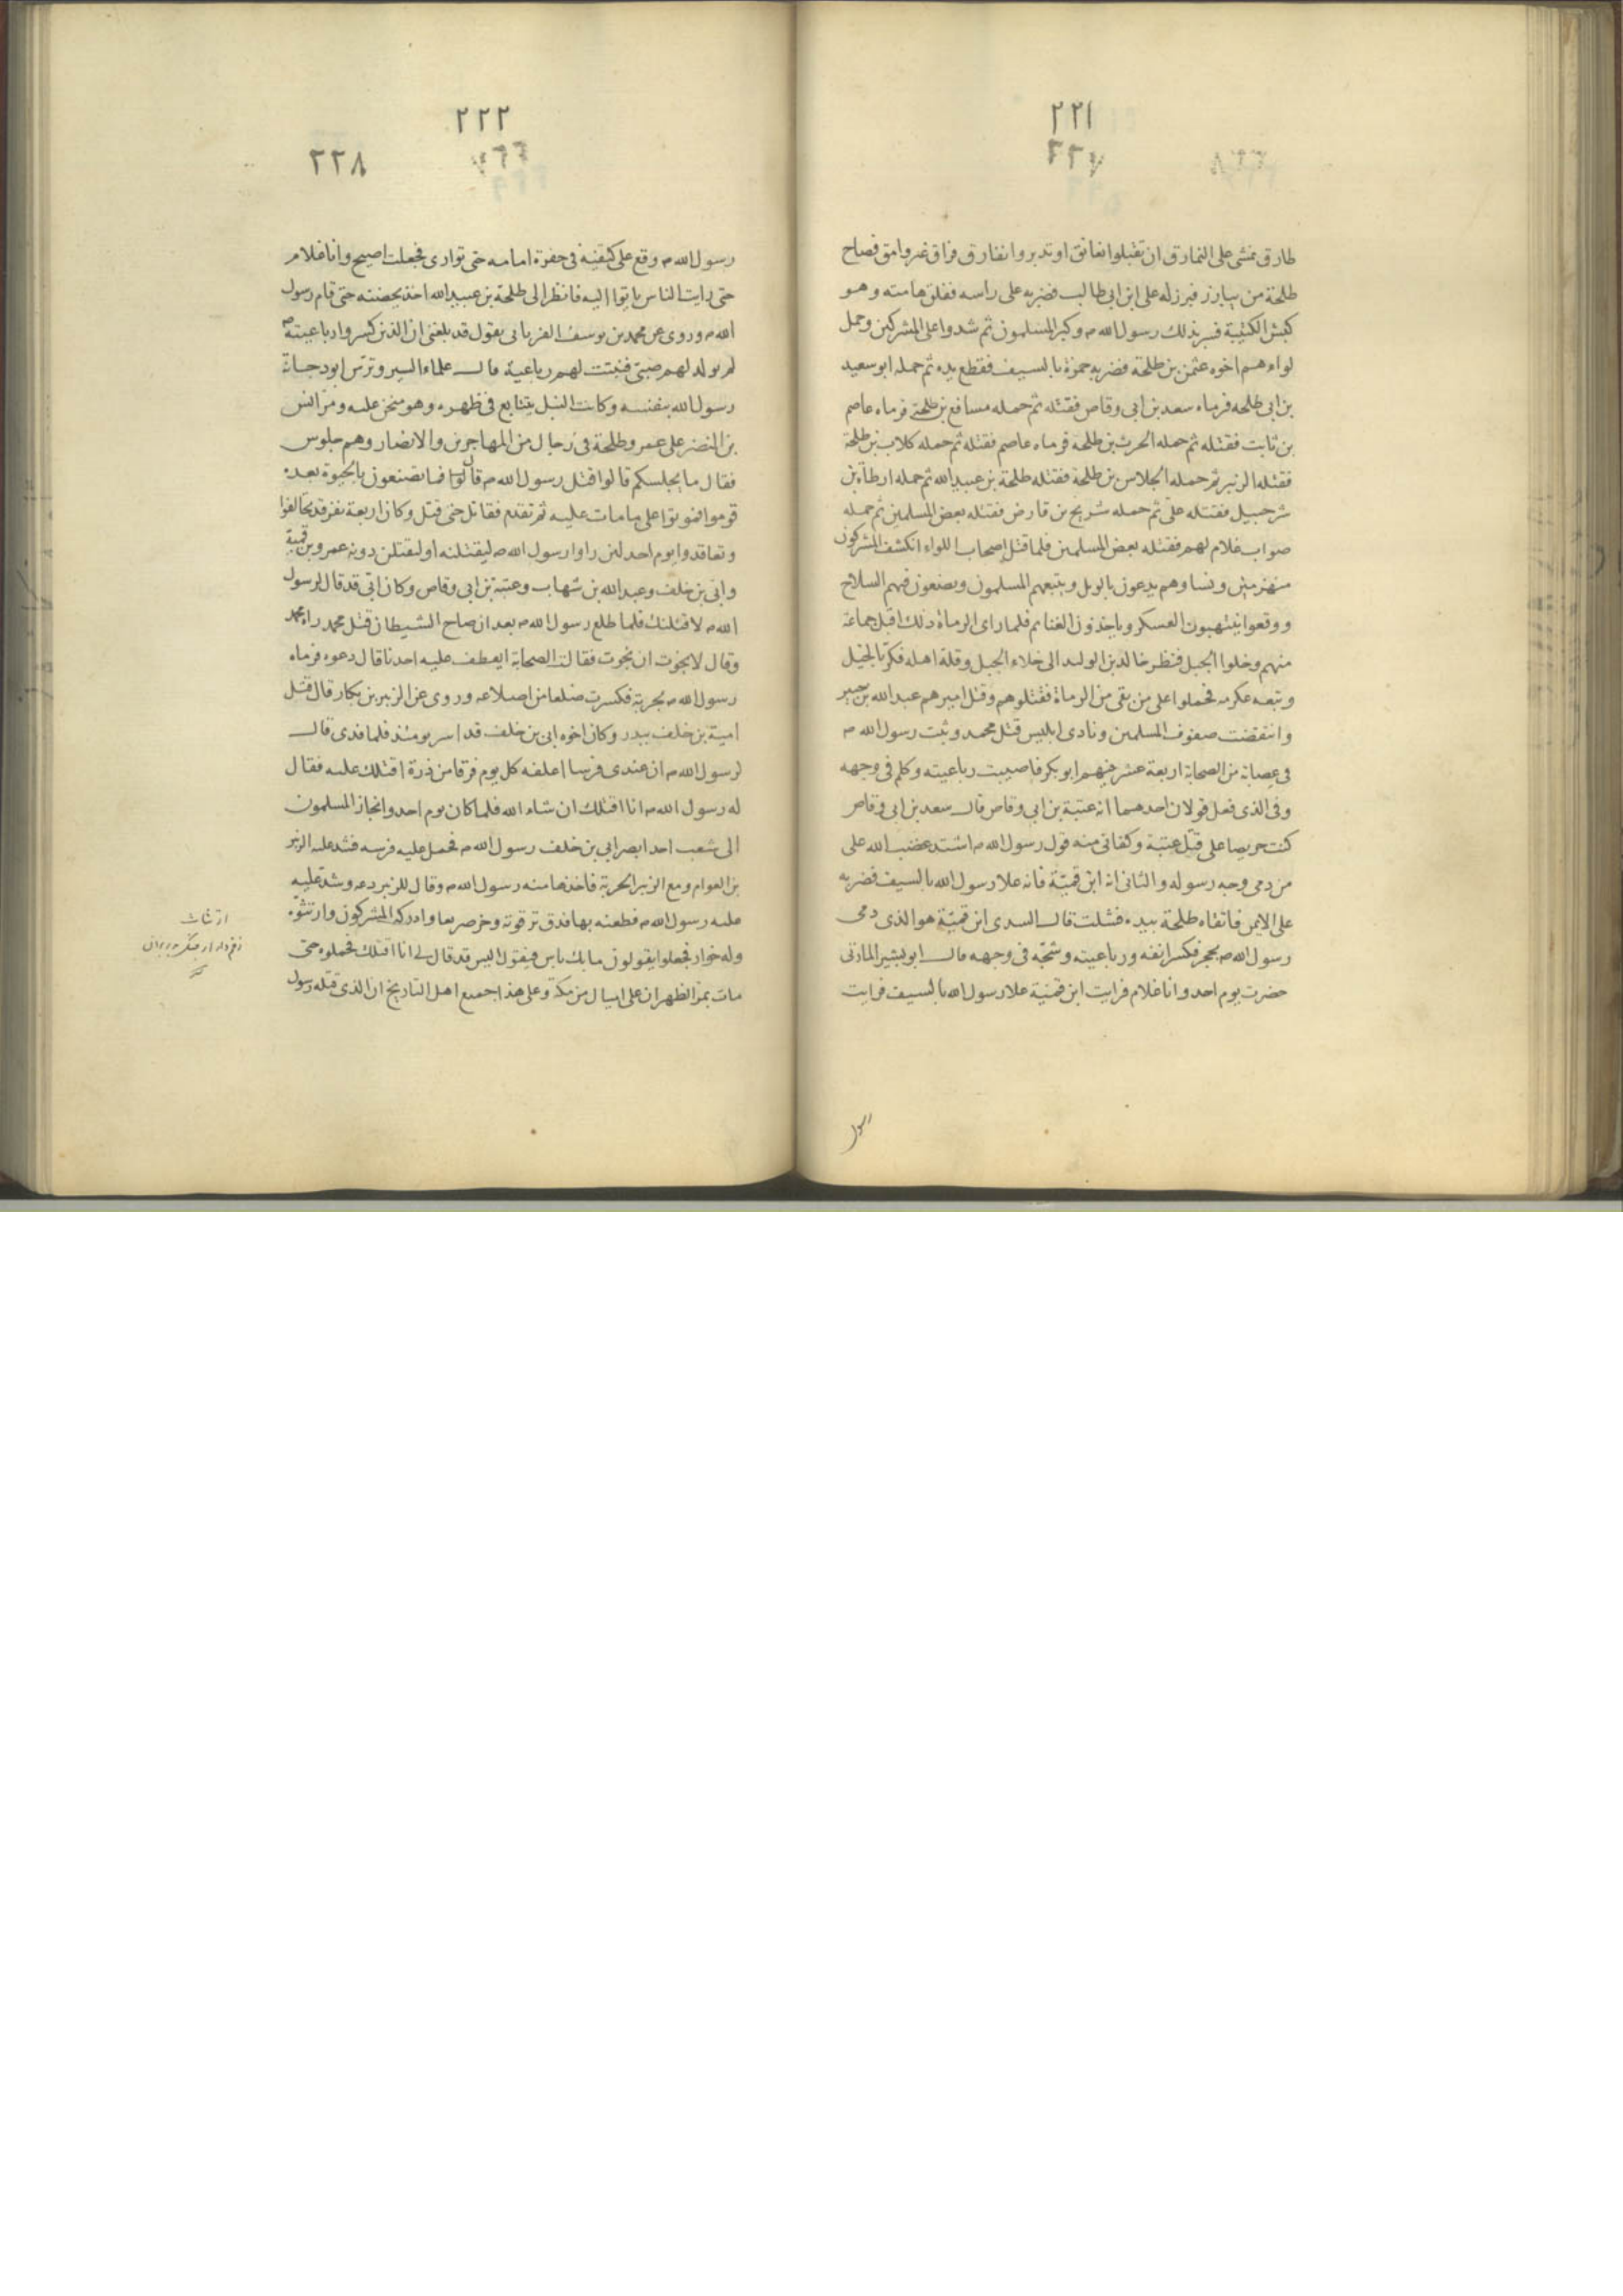 ٢٢١
٢٢٧
طارق نمشى على النمارق ان تقبلوا نعانق او تدبروا نفارق فراق غير وامق فصاح
طلحة من يبارز فبرز له على ابن ابى طالب فضربه على راسه ففلق هامته وهو
كبش الكتيبة فسر بذلك رسول الله ص وكبر المسلمون ثم شدوا على المشركين وحمل
لواءهم اخوه عثمن بن طلحة فضربه حمزة بالسيف فقطع يده ثم حمله ابو سعيد
بن ابى طلحه فرماه سعد بن ابى وقاص فقتله ثم حمله مسافع بن طلحة فرماه عاصم
بن ثابت فقتله ثم حمله الحرث بن طلحة فرماه عاصم فقتله ثم حمله كلاب بن طلحة
فقتله الزبير ثم حمله الجلاس بن طلحة فقتله طلحة بن عبيد الله ثم حمله ارطاة بن
شرحبيل فقتله على ثم حمله شريح بن قارض فقتله بعض المسلمين ثم حمله
صواب غلام لهم فقتله بعض المسلمين فلما قتل اصحاب اللواء انكشف المشركون
منهزمين ونساوهم يدعون بالويل ويتبعهم المسلمون ويضعون فيهم السلاح
ووقعوا ينتهبون العسكر وياخذون الغنايم فلما راى الرماة ذلك اقبل جماعة
منهم وخلوا الجبل فنظر خالد بن الوليد الى خلاء الجبل وقلة اهله فكر بالخيل
وتبعه عكرمه فحملوا على من بقى من الرماة فقتلوهم وقتل اميرهم عبد الله بن جبير
وانتقضت صفوف المسلمين ونادى ابليس قتل محمد وثبت رسول الله ص
فى عصابة من الصحابة اربعة عشر منهم ابو بكر فاصيبت رباعيته وكلم فى وجهه
وفى الذى فعل قولان احدهما انه عتبة بن ابى وقاص قال سعد بن ابى وقاص
كنت حريصا على قتل عتبة وكفانى منه قول رسول الله ص اشتد غضب الله على
من دمى وجه رسوله والثانى انه ابن قميّة فانه علا رسول الله بالسيف فضربه
على الايمن فاتقاه طلحة بيده فشلت قال السدى ابن قميّة هو الذى دمى
رسول الله ص بحجر فكسر انفه ورباعيته وشجّه فى وجهه قال ابو بشير المازنى
حضرت يوم احد وانا غلام فرايت ابن قميّة علا رسول الله بالسيف فرايت
رسول
٢٢٢
٢٢٨
رسول الله ص وقع على كتفيه فى حفرة امامه حتى توارى فجعلت اصيح وانا غلام
حتى رايت الناس ياتوا اليه فانظر الى طلحة بن عبيد الله اخذ بحضنته حتى قام رسول
الله ص وروى عن محمد بن يوسف الفريابى يقول قد بلغنى ان الذين كسروا رباعيته ص
لم يولد لهم صبى فنبتت لهم رباعية قال علماء السير وترّس ابو دجانة
رسول الله بنفسه وكانت النبل يتتابع فى ظهره وهو منحن عليه ومر انس
بن النضر على عمر وطلحة فى رجال من المهاجرين والانصار وهم جلوس
فقال ما يجلسكم قالوا قتل رسول الله ص قال فما تصنعون بالحيوة بعده
قوموا فموتوا على ما مات عليه ثم تقدم فقاتل حتى قتل وكان اربعة نفر قد تحالفوا
وتعاقدوا يوم احد لئن راوا رسول الله ص ليقتلنه او ليقتلن دونه عمرو بن قمية
وابى بن خلف وعبد الله بن شهاب وعتبة بن ابى وقاص وكان ابى قد قال لرسول
الله ص لاقتلنك فلما طلع رسول الله ص بعد ان صاح الشيطان قتل محمد راه محمد
وقال لا نجوت ان نجوت فقالت الصحابة ايعطف عليه احدنا قال دعوه فرماه
رسول الله ص بحربة فكسرت ضلعا من اضلاعه وروى عن الزبير بن بكار قال قتل
امية بن خلف ببدر وكان اخوه ابى بن خلف قد اسر يومئذ فلما فدى قال
لرسول الله ص ان عندى فرسا اعلفه كل يوم فرقا من ذرة اقتلك عليه فقال
له رسول الله ص انا اقتلك ان شاء الله فلما كان يوم احد وانحاز المسلمون
الى شعب احد ابصر ابى بن خلف رسول الله ص فحمل عليه فرسه فشد عليه الزبير
بن العوام ومع الزبير الحربة فاخذها منه رسول الله ص وقال للزبير دعه وشد عليه
عليه رسول الله ص فطعنه بها فدق ترقوته وخر صريعا وادركه المشركون وارتثّوه
وله خوار فجعلوا يقولون ما بك باس فيقول اليس قد قال لى انا اقتلك فحملوه حتى
مات بمر الظهران على اميال من مكة وعلى هذا جميع اهل التاريخ ان الذى قتله رسول